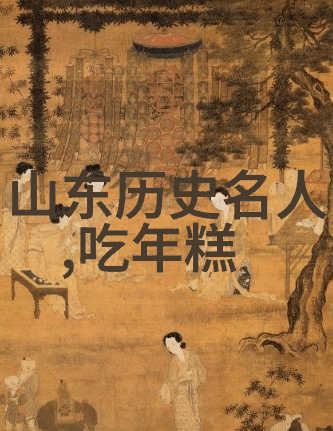 山东历史名人
,吃年糕